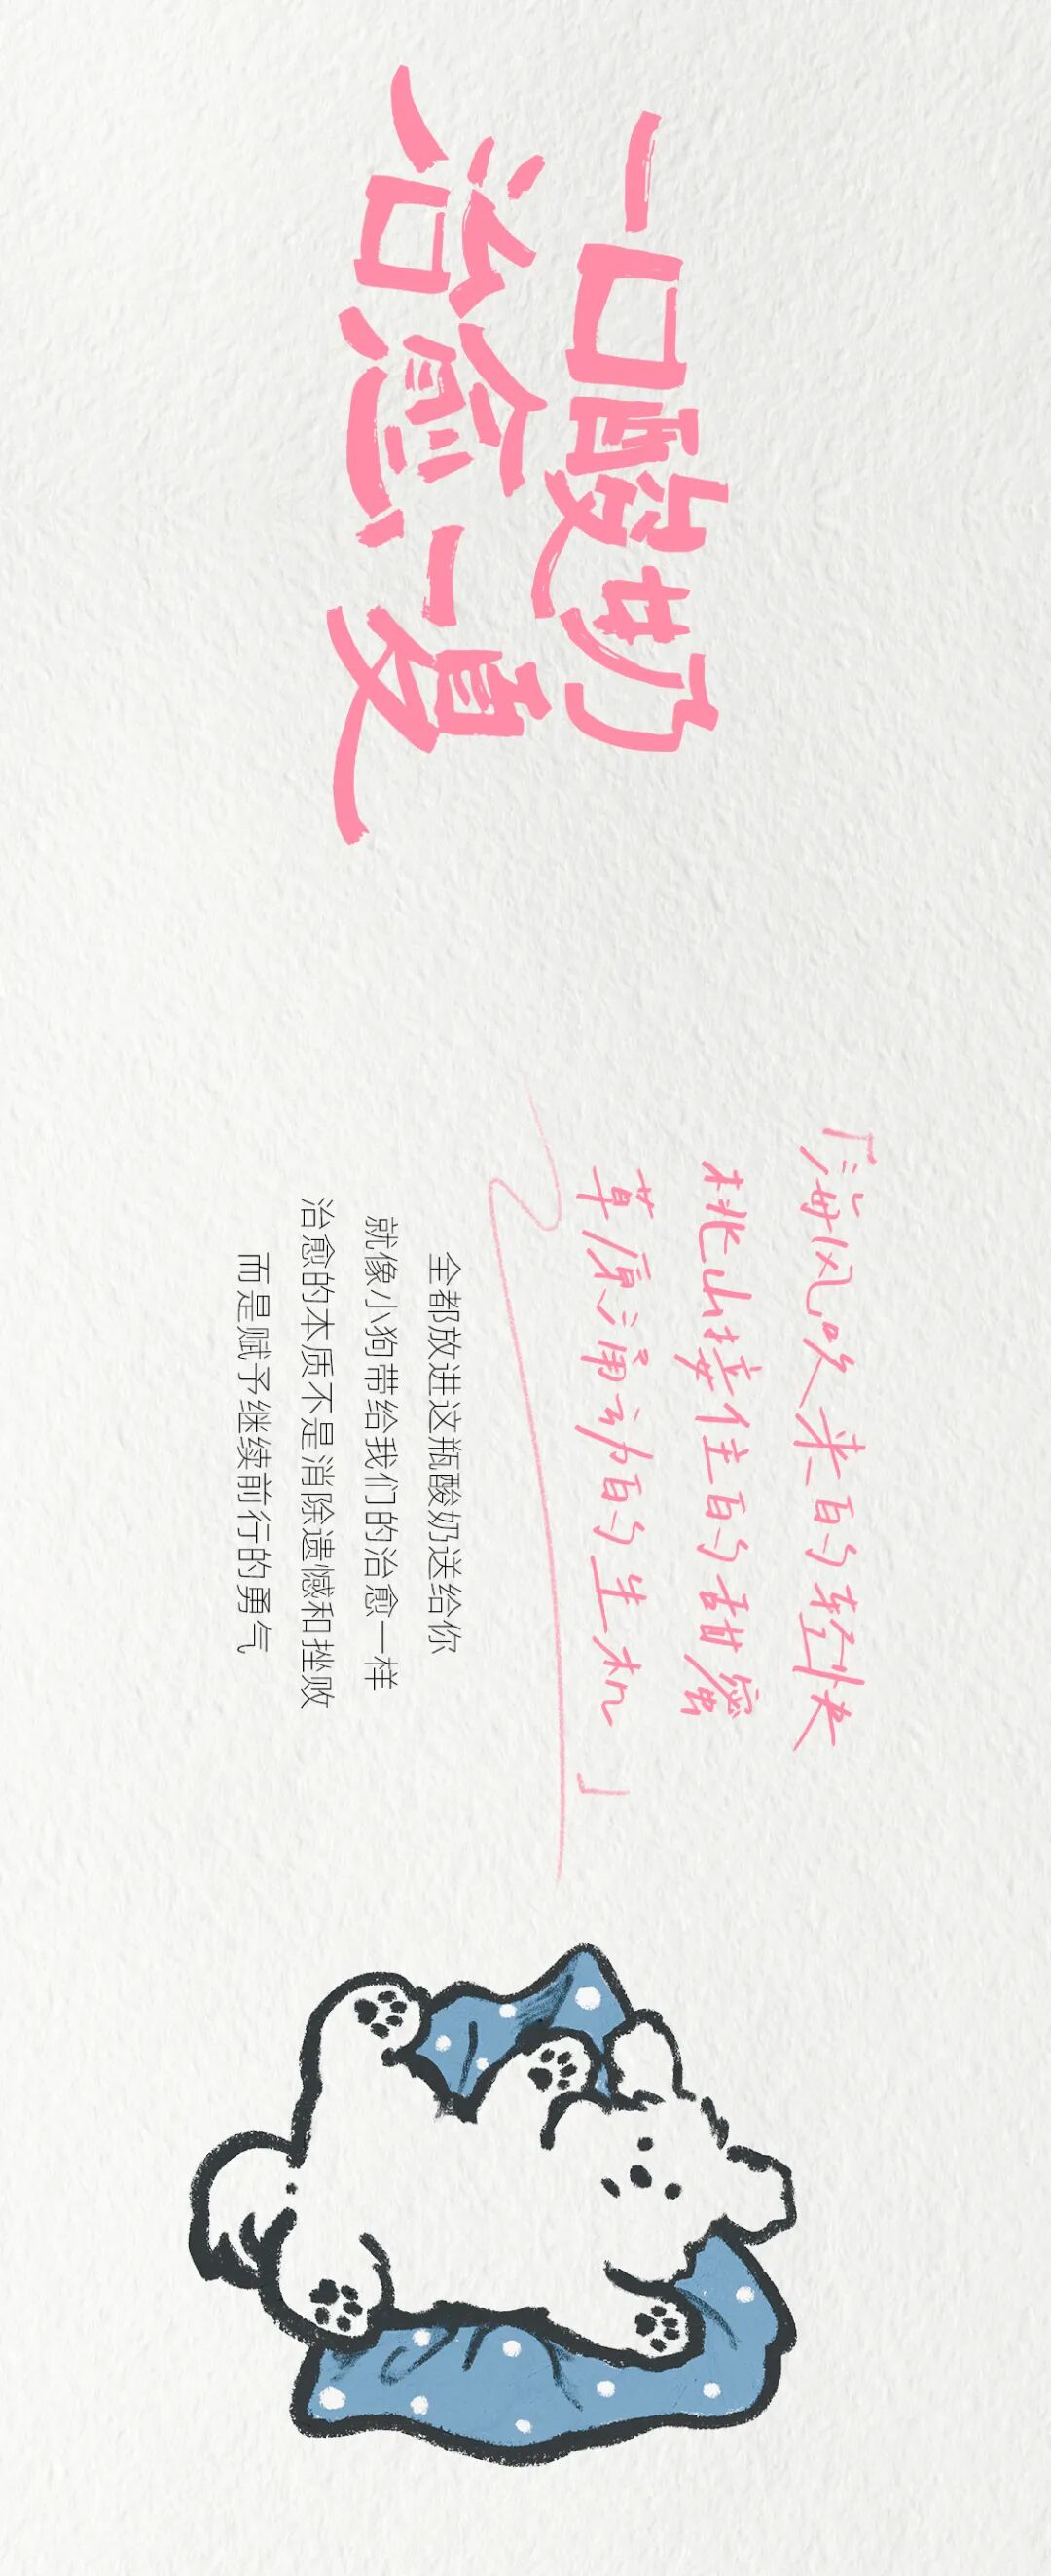 一口酸奶
治愈一夏
「海风吹来的轻快
桃山接住的甜蜜
草原涌动的生机」
全都放进这瓶酸奶送给你
就像小狗带给我们的治愈一样
治愈的本质不是消除遗憾和挫败
而是赋予继续前行的勇气